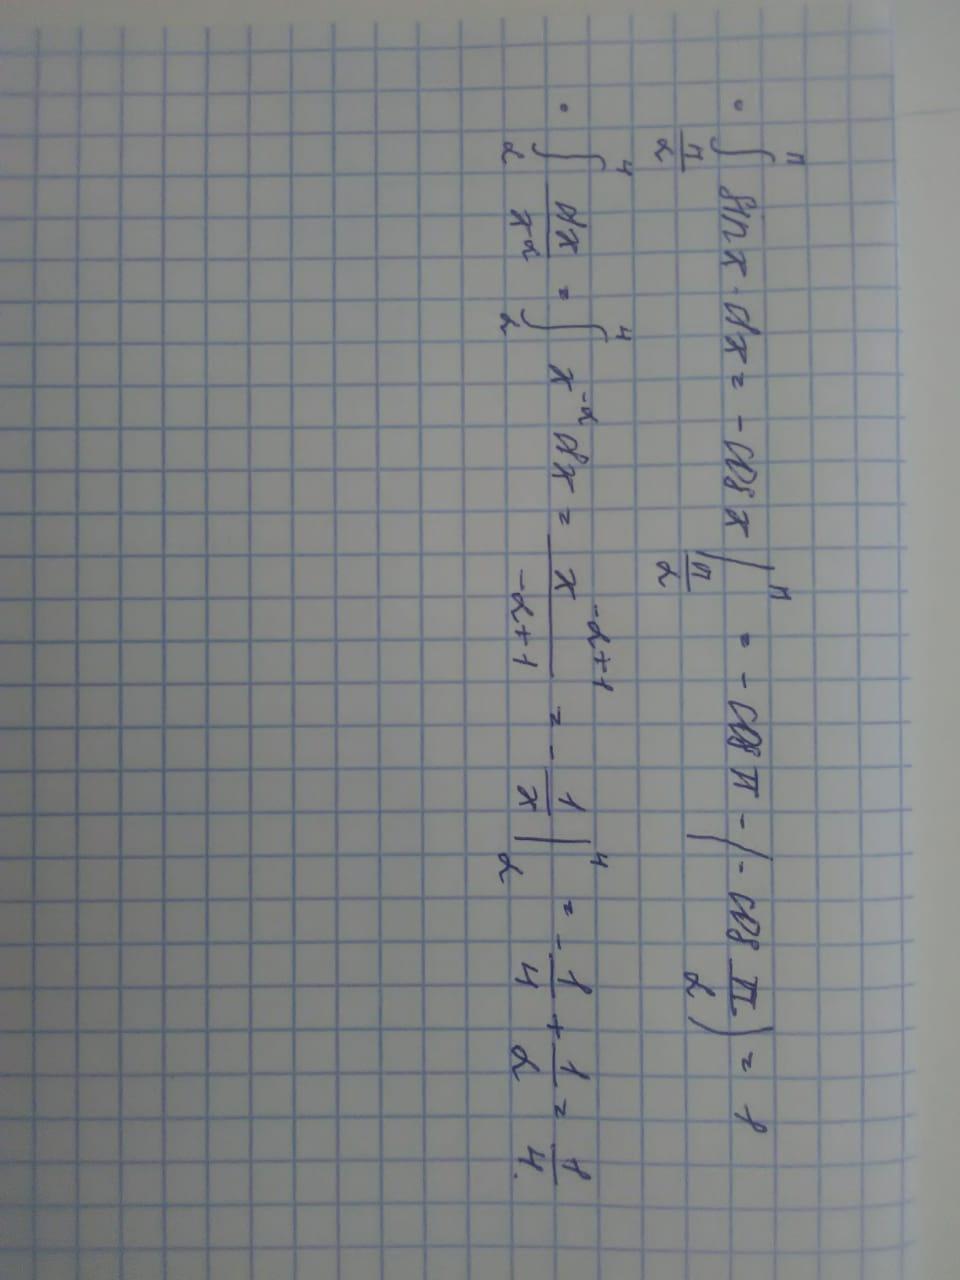 • ∫_{π/2}^{π} sin x · dx = - cos x |_{π/2}^{π} = - cos π - (- cos π/2) = 1
• ∫_{2}^{4} dx/x² = ∫_{2}^{4} x^{-2} dx = x^{-2+1}/-2+1 = - 1/x |_{2}^{4} = - 1/4 + 1/2 = 1/4.